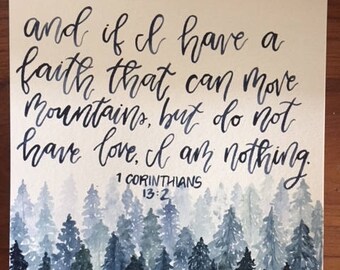 and if I have a
faith that can move
mountains, but do not
have love, I am nothing.
1 CORINTHIANS
13:2